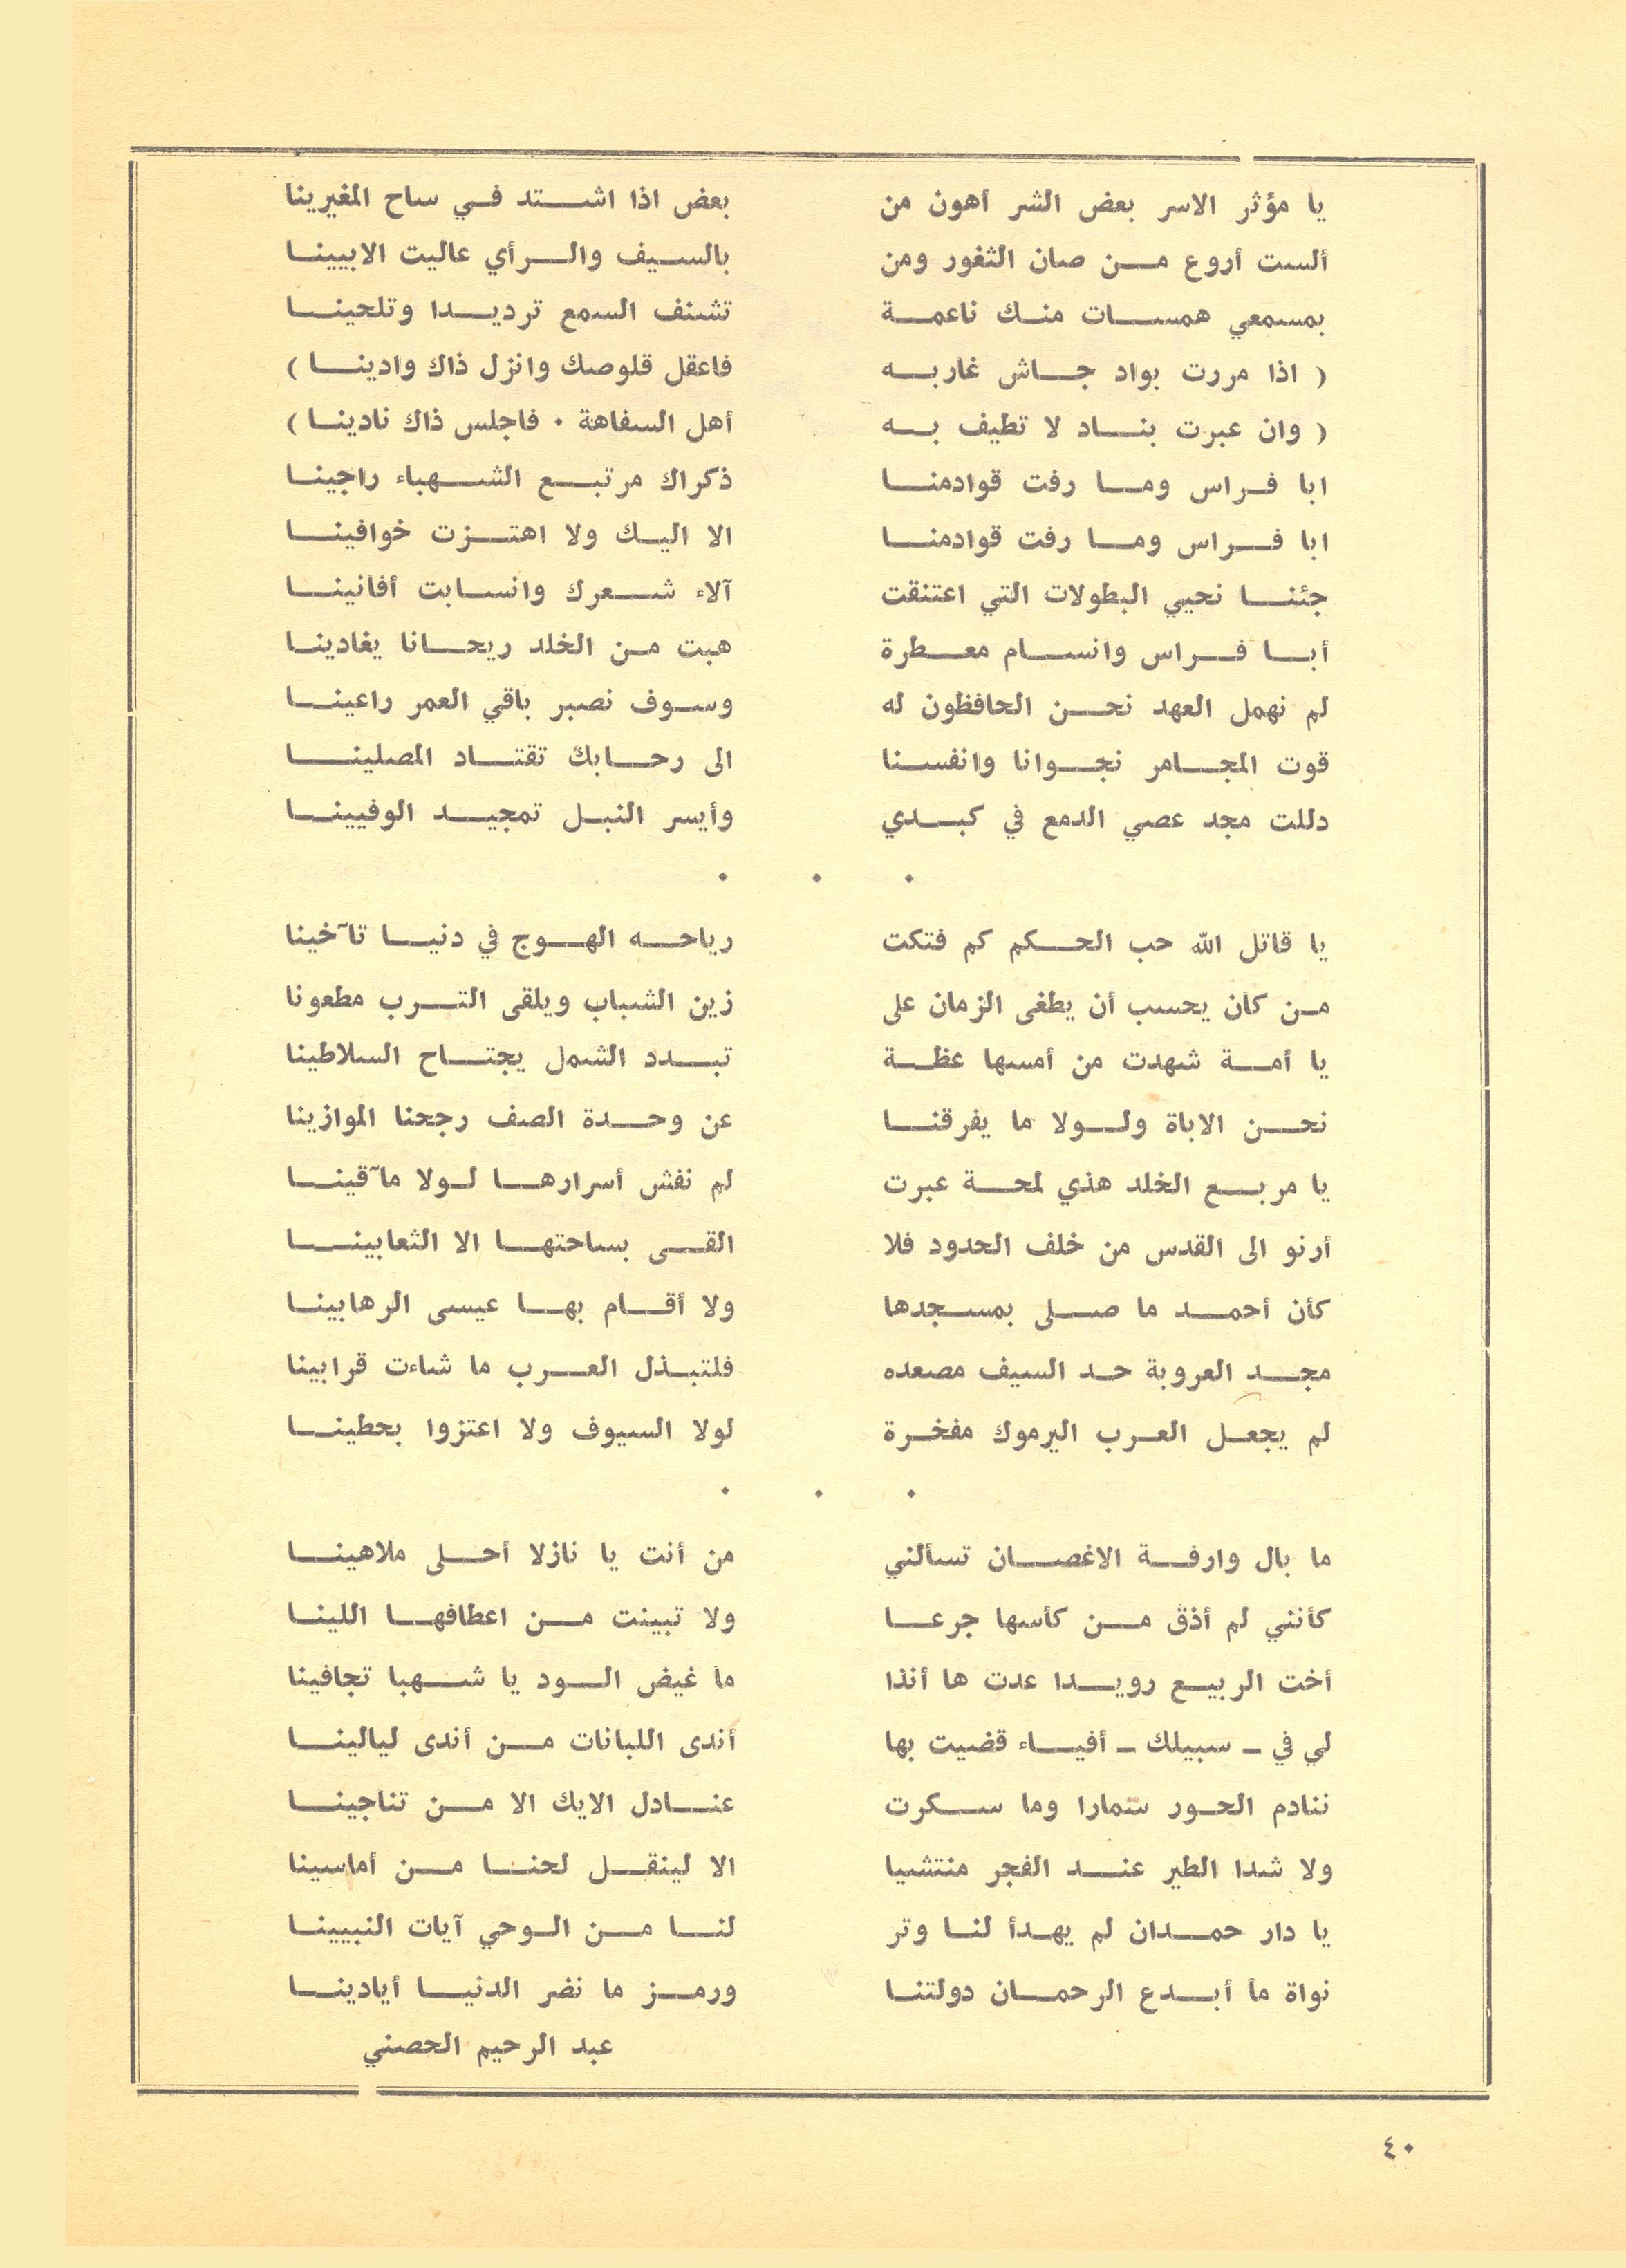 يا مؤثر الاسر بعض الشر أهون من بعض اذا اشتد في ساح المغيرينا
ألست أروع من صان الثغور ومن بالسيف والرأي عاليت الابيينا
بمسمعي همسات منك ناعمة تشنف السمع ترديدا وتلحينا
( اذا مررت بواد جاش غاربه فاعقل قلوصك وانزل ذاك وادينا )
( وان عبرت بناد لا تطيف به أهل السفاهة ٠ فاجلس ذاك نادينا )
ابا فراس وما رفت قوادمنا ذكراك مرتبع الشهباء راجينا
ابا فراس وما رفت قوادمنا الا اليك ولا اهتزت خوافينا
جئنا نحيي البطولات التي اعتنقت آلاء شعرك وانسابت أفانينا
أبا فراس وانسام معطرة هبت من الخلد ريحانا يغادينا
لم نهمل العهد نحن الحافظون له وسوف نصبر باقي العمر راعينا
قوت المجامر نجوانا وانفسنا الى رحابك تقتاد المصلينا
دللت مجد عصي الدمع في كبدي وأيسر النبل تمجيد الوفيينا
٠ ٠ ٠
يا قاتل الله حب الحكم كم فتكت رياحه الهوج في دنيا تآخينا
من كان يحسب أن يطغى الزمان على زين الشباب ويلقى الترب مطعونا
يا أمة شهدت من أمسها عظة تبدد الشمل يجتاح السلاطينا
نحن الاباة ولولا ما يفرقنا عن وحدة الصف رجحنا الموازينا
يا مربع الخلد هذي لمحة عبرت لم نفش أسرارها لولا مآقينا
أرنو الى القدس من خلف الحدود فلا القى بساحتها الا الثعابينا
كأن أحمد ما صلى بمسجدها ولا أقام بها عيسى الرهابينا
مجد العروبة حد السيف مصعده فلتبذل العرب ما شاءت قرابينا
لم يجعل العرب اليرموك مفخرة لولا السيوف ولا اعتزوا بحطينا
٠ ٠ ٠
ما بال وارفة الاغصان تسألني من أنت يا نازلا أحلى ملاهينا
كأنني لم أذق من كأسها جرعا ولا تبينت من اعطافها اللينا
أخت الربيع رويدا عدت ها أنذا ما غيض الود يا شهبا تجافينا
لي في ـ سبيلك ـ أفياء قضيت بها أندى اللبانات من أندى ليالينا
ننادم الحور سمارا وما سكرت عنادل الايك الا من تناجينا
ولا شدا الطير عند الفجر منتشيا الا لينقل لحنا من أماسينا
يا دار حمدان لم يهدأ لنا وتر لنا من الوحي آيات النبيينا
نواة ما أبدع الرحمان دولتنا ورمز ما نضر الدنيا أيادينا
عبد الرحيم الحصني
٤٠